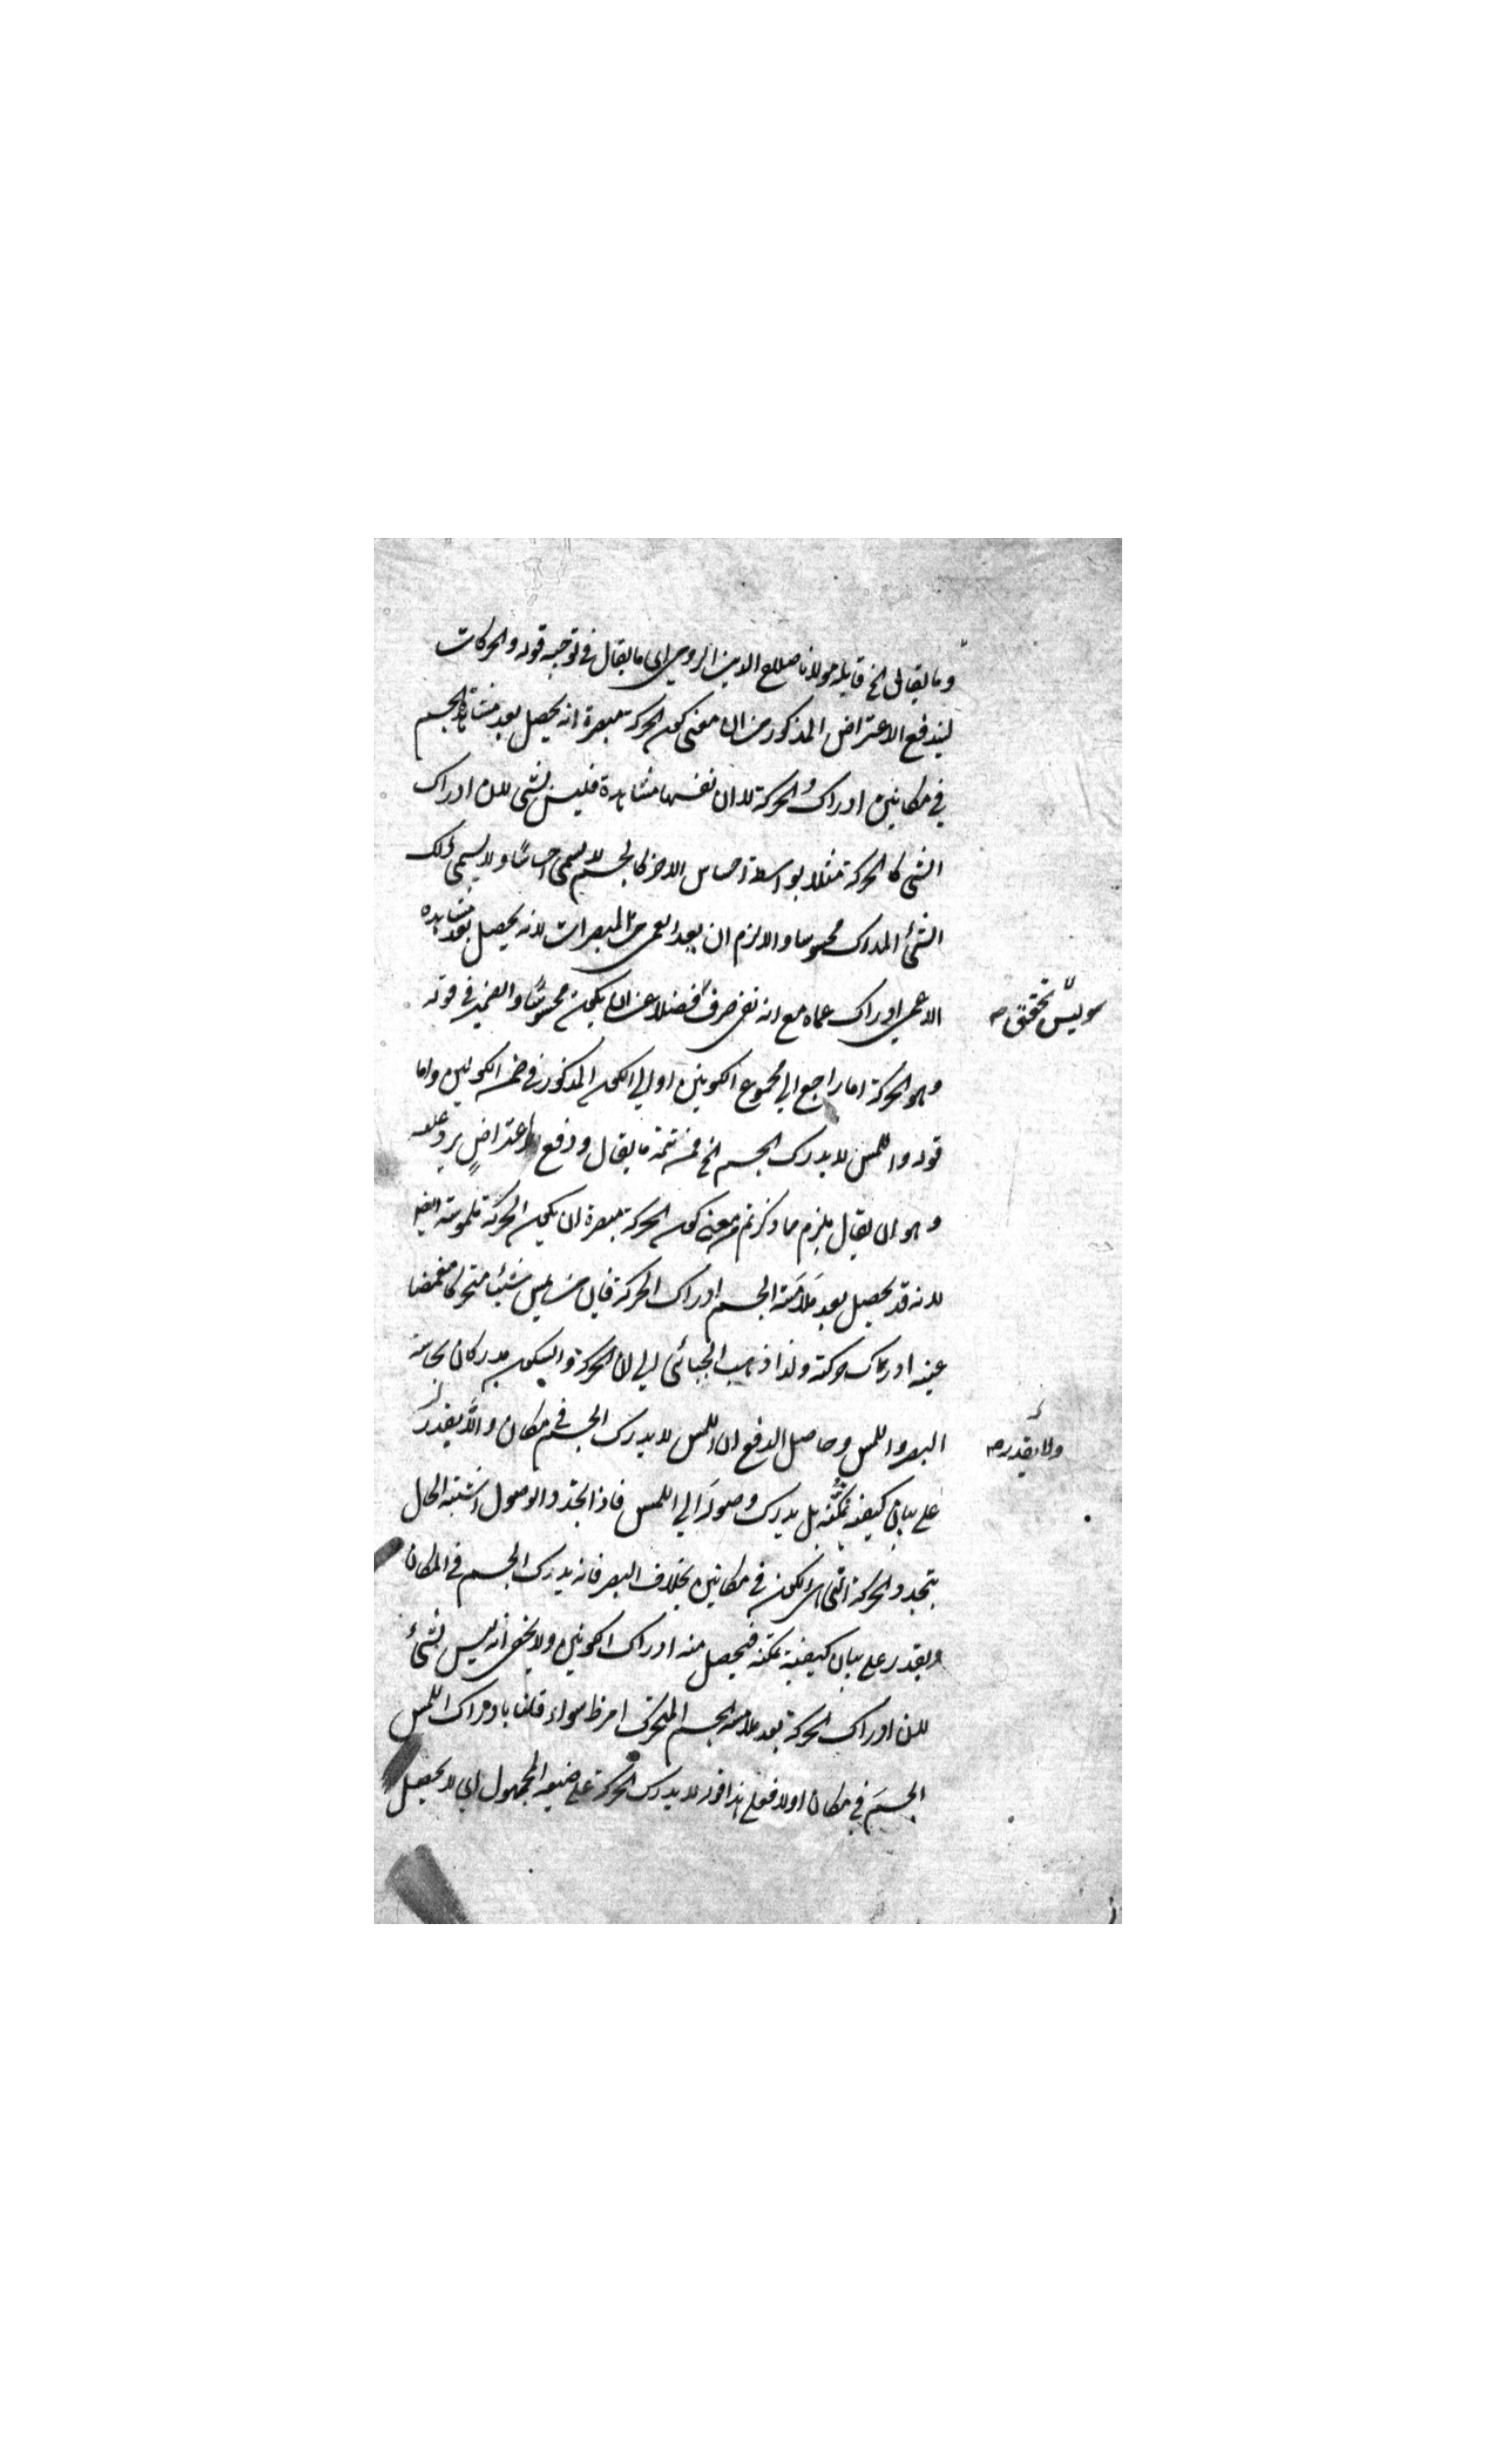 وما يقال الخ قايله مولانا صلاح الدين الرومي اي ما يقال في توجيه قوله والحركات
ليندفع الاعتراض المذكور من ان معنى كون الحركة مبصرة انه يحصل بعد مشاهدة الجسم
في مكانين ادراك الحركة لا ان نفسها مشاهدة فليس بشئ لان ادراك
الشئ كالحركة مثلا بواسطة احساس الاخر كالجسم لا يسمى احساسا ولا يسمى ذلك
الشئ المدرك محسوسا والا لزم ان يعد العمى من المبصرات لانه يحصل بعد مشاهدة
الاعمى ادراك عماه مع انه نفى صرف فضلا عن ان يكون محسوسا والضمير في قوله
سو ليس تحقق صح
وهو الحركة اما راجع الي مجموع الكونين او الي الكون المذكور في ضمن الكونين واما
قوله واللمس لا يدرك الجسم الخ فمن تتمة ما يقال ودفع اعتراض يرد عليه
وهو ان يقال يلزم مما ذكرتم من معنى كون الحركة مبصرة ان يكون الحركة ملموسة ايضا
لانه قد يحصل بعد ملامسة الجسم ادراك الحركة فان من لمس شيئا متحركا مغمضا
عينه ادرك حركته ولذا ذهب الجبائي الي ان الحركة والسكون مدركان بحاسة
البصر واللمس وحاصل الدفع ان اللمس لا يدرك الجسم في مكان والا يقدر
ولا يقدر صح
على بيان كيفية تمكنه بل يدرك وصوله الي اللمس فاذا تجدد الوصول اشتبه الحال
بتجدد الحركة التي هي الكون في مكانين بخلاف البصر فانه يدرك الجسم في المكان
ويقدر على بيان كيفية تمكنه فيحصل منه ادراك الكونين ولا يخفى انه ليس بشئ
لان ادراك الحركة بعد ملامسة الجسم المتحرك امر ظ سواء قلنا بادراك اللمس
الجسم في مكان اولا فعلى هذا قوله لا يدرك الحركة على صيغة المجهول اي لا يحصل